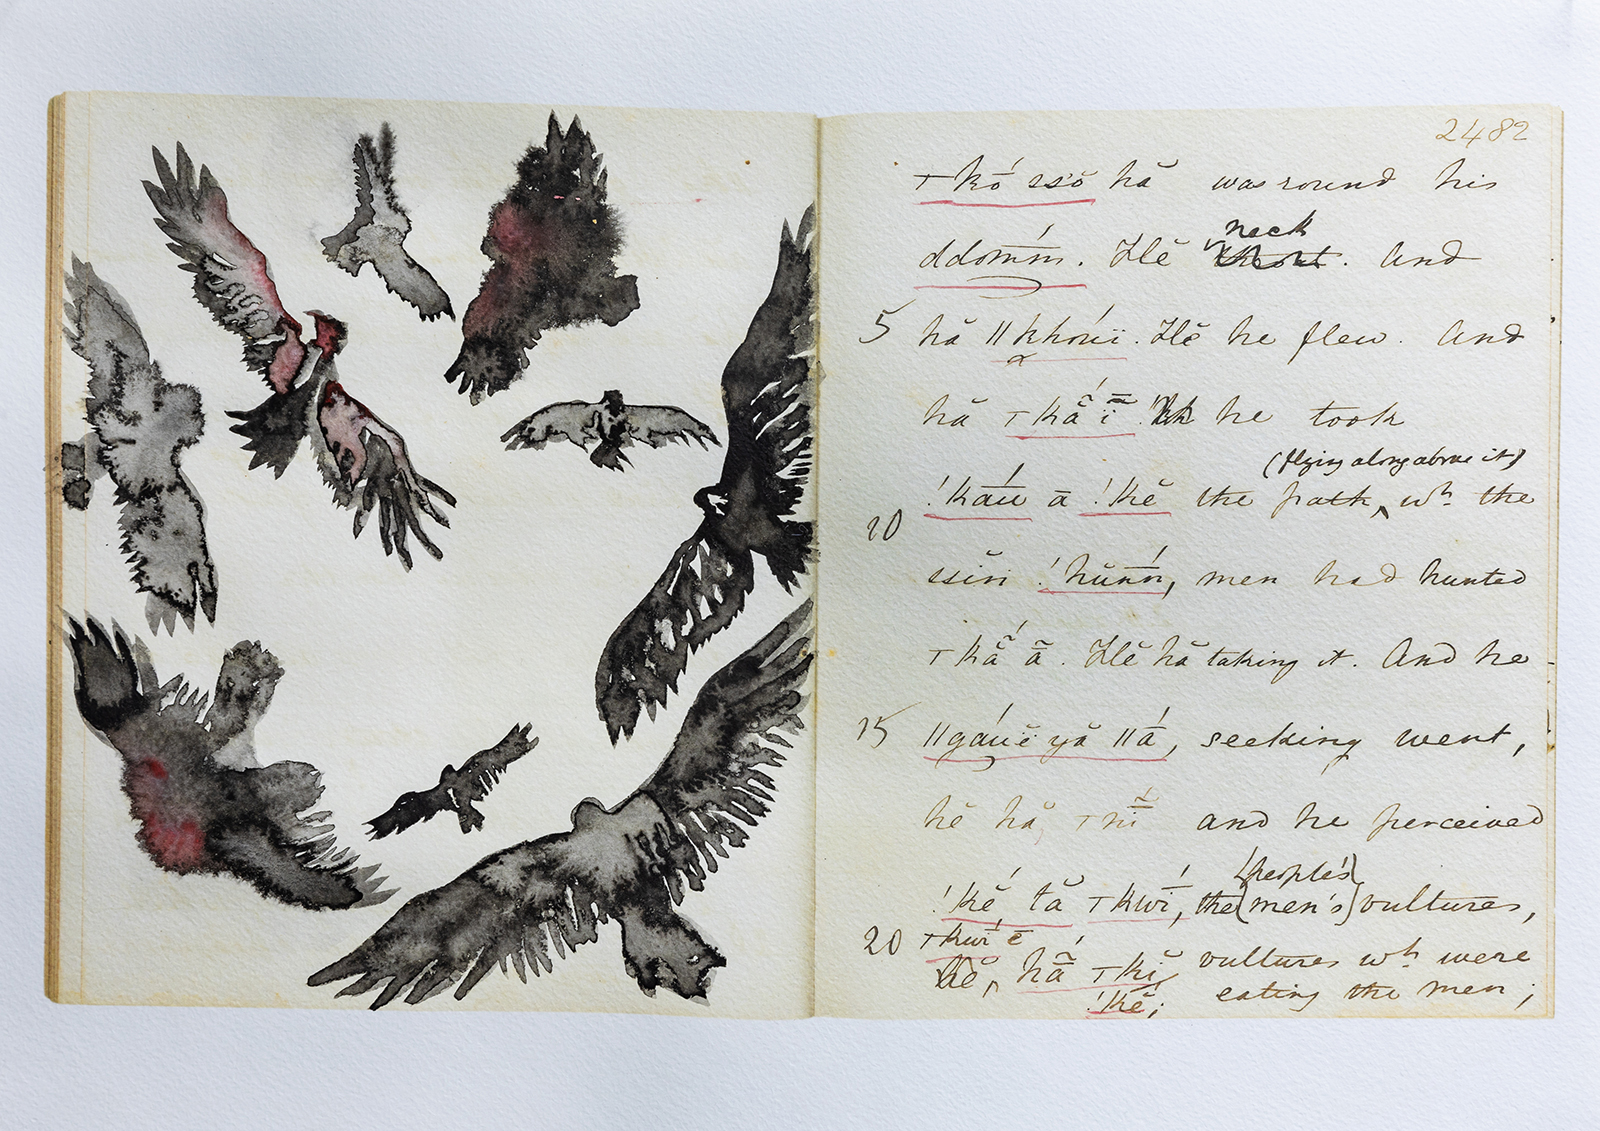 2482
⊤kó ssŏ hă was round his
neck
ddóm̄m. Hĕ throat. And
5 hă ǁkhóuï. Hĕ he flew. And
hă ⊤kắ ī he took
(flying along above it)
!káu ā !kĕ the path, wh. the
10
ssiri !hŭń̄n, men had hunted
⊤kắ ā̃. Hĕ hă taking it. And he
15 ǁgáuĕ yă ǁá, seeking went,
hĕ hă ⊤nī̃ and he perceived
{people's}
!ké, tă ⊤kwí, the {men's} vultures,
20 ⊤kwī ē
hā̃́ ⊤ki vultures wh. were
!kĕ; eating the men;